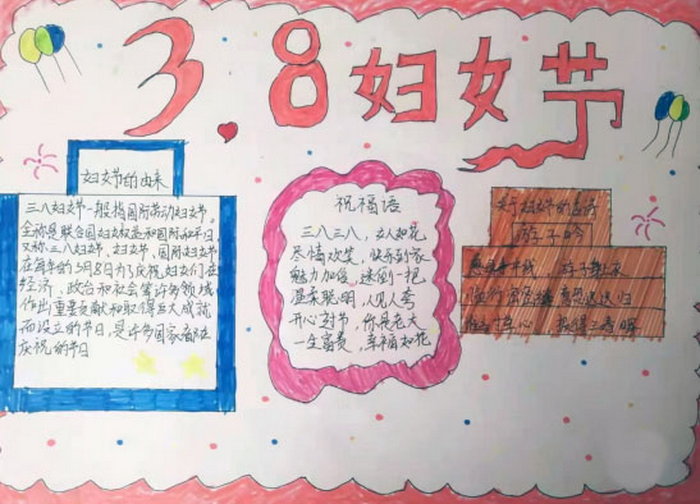 3.8妇女节
妇女节的由来
三八妇女节一般指国际劳动妇女节。
全称是联合国妇女权益和国际和平日
又称三八妇女节、妇女节、国际妇女节
在每年的3月8日为了庆祝妇女们在
经济、政治和社会等许多领域
作出重要贡献和取得巨大成就
而设立的节日,是许多国家都在
庆祝的节日
祝福语
三八三八,女人如花
尽情欢笑,快乐到家
魅力加倍,迷倒一把
温柔聪明,人见人夸
开心过节,你是老大
一生富贵,幸福如花
关于妇女节的古诗
游子吟
慈母手中线,游子身上衣
临行密密缝 意恐迟迟归